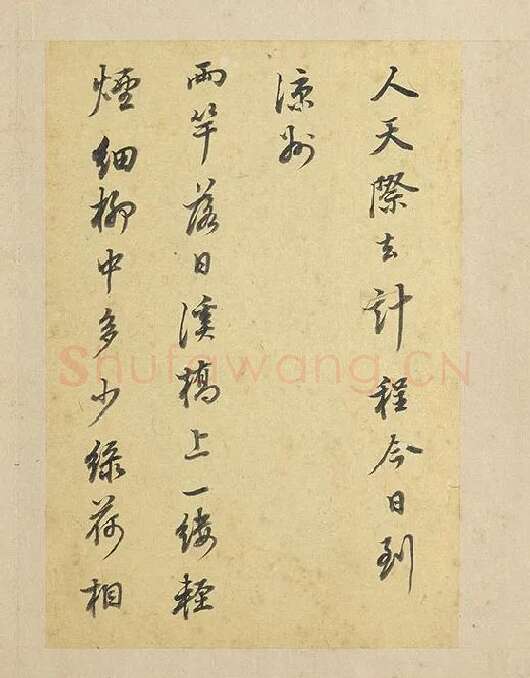 人天際去計程今日到
涼州
兩竿落日溪橋上一縷輕
煙細柳中多少綠荷相
Shufawang.CN